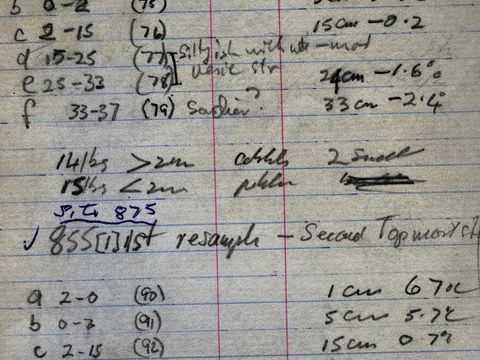 b 0-2 (75)
c 2-15 (76) 15cm -0.2
d 15-25 (77) Siltyish with
e 25-33 (78) 24cm -1.6°
f 33-37 (79) Sandier? 33cm -2.4°
>2mm cobbles 2 small
15kg <2mm
875
✓ 855[1] 1st resample - Second Topmost
a 2-0 (90) 1cm 6.7°C
b 0-2 (91) 5cm 5.7°C
c 2-15 (92) 15cm 0.7°C